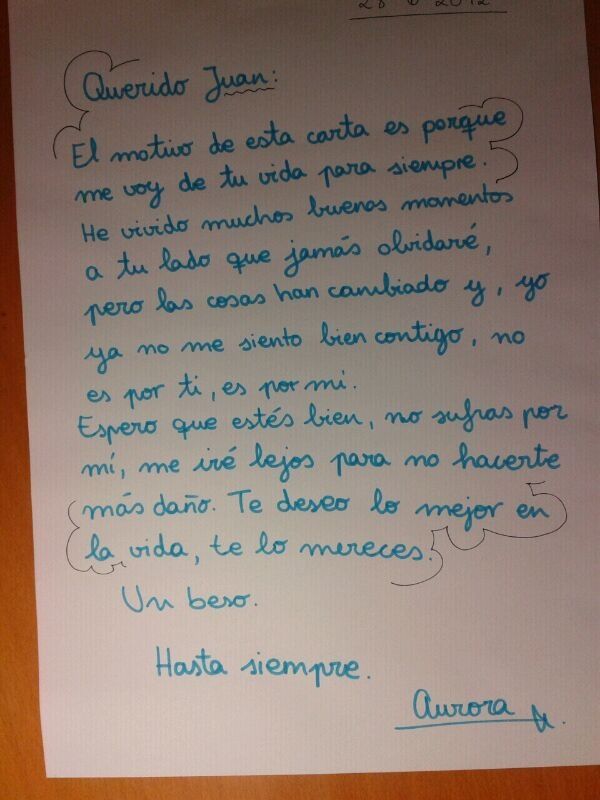 2012
Querido Juan:
El motivo de esta carta es porque
me voy de tu vida para siempre.
He vivido muchos buenos momentos
a tu lado que jamás olvidaré,
pero las cosas han cambiado y, yo
ya no me siento bien contigo, no
es por ti, es por mí.
Espero que estés bien, no sufras por
mí, me iré lejos para no hacerte
más daño. Te deseo lo mejor en
la vida, te lo mereces.
Un beso.
Hasta siempre.
Aurora